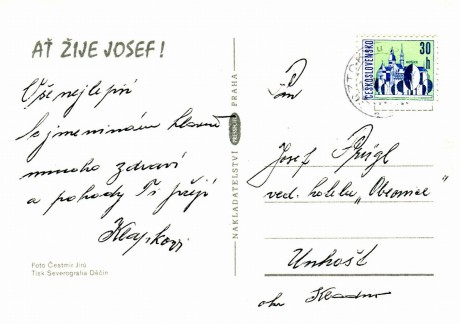 AŤ ŽIJE JOSEF!
Vše nejlepší
k jmeninám hlavně
mnoho zdraví
a pohody Ti přejí
Foto Čestmír Jírů
Tisk Severografia Děčín
NAKLADATELSTVÍ PRESSFOTO PRAHA
ČESKOSLOVENSKO
30 h
Pan
Josef
ved. hotelu „
Unhošť
okr. Kladno